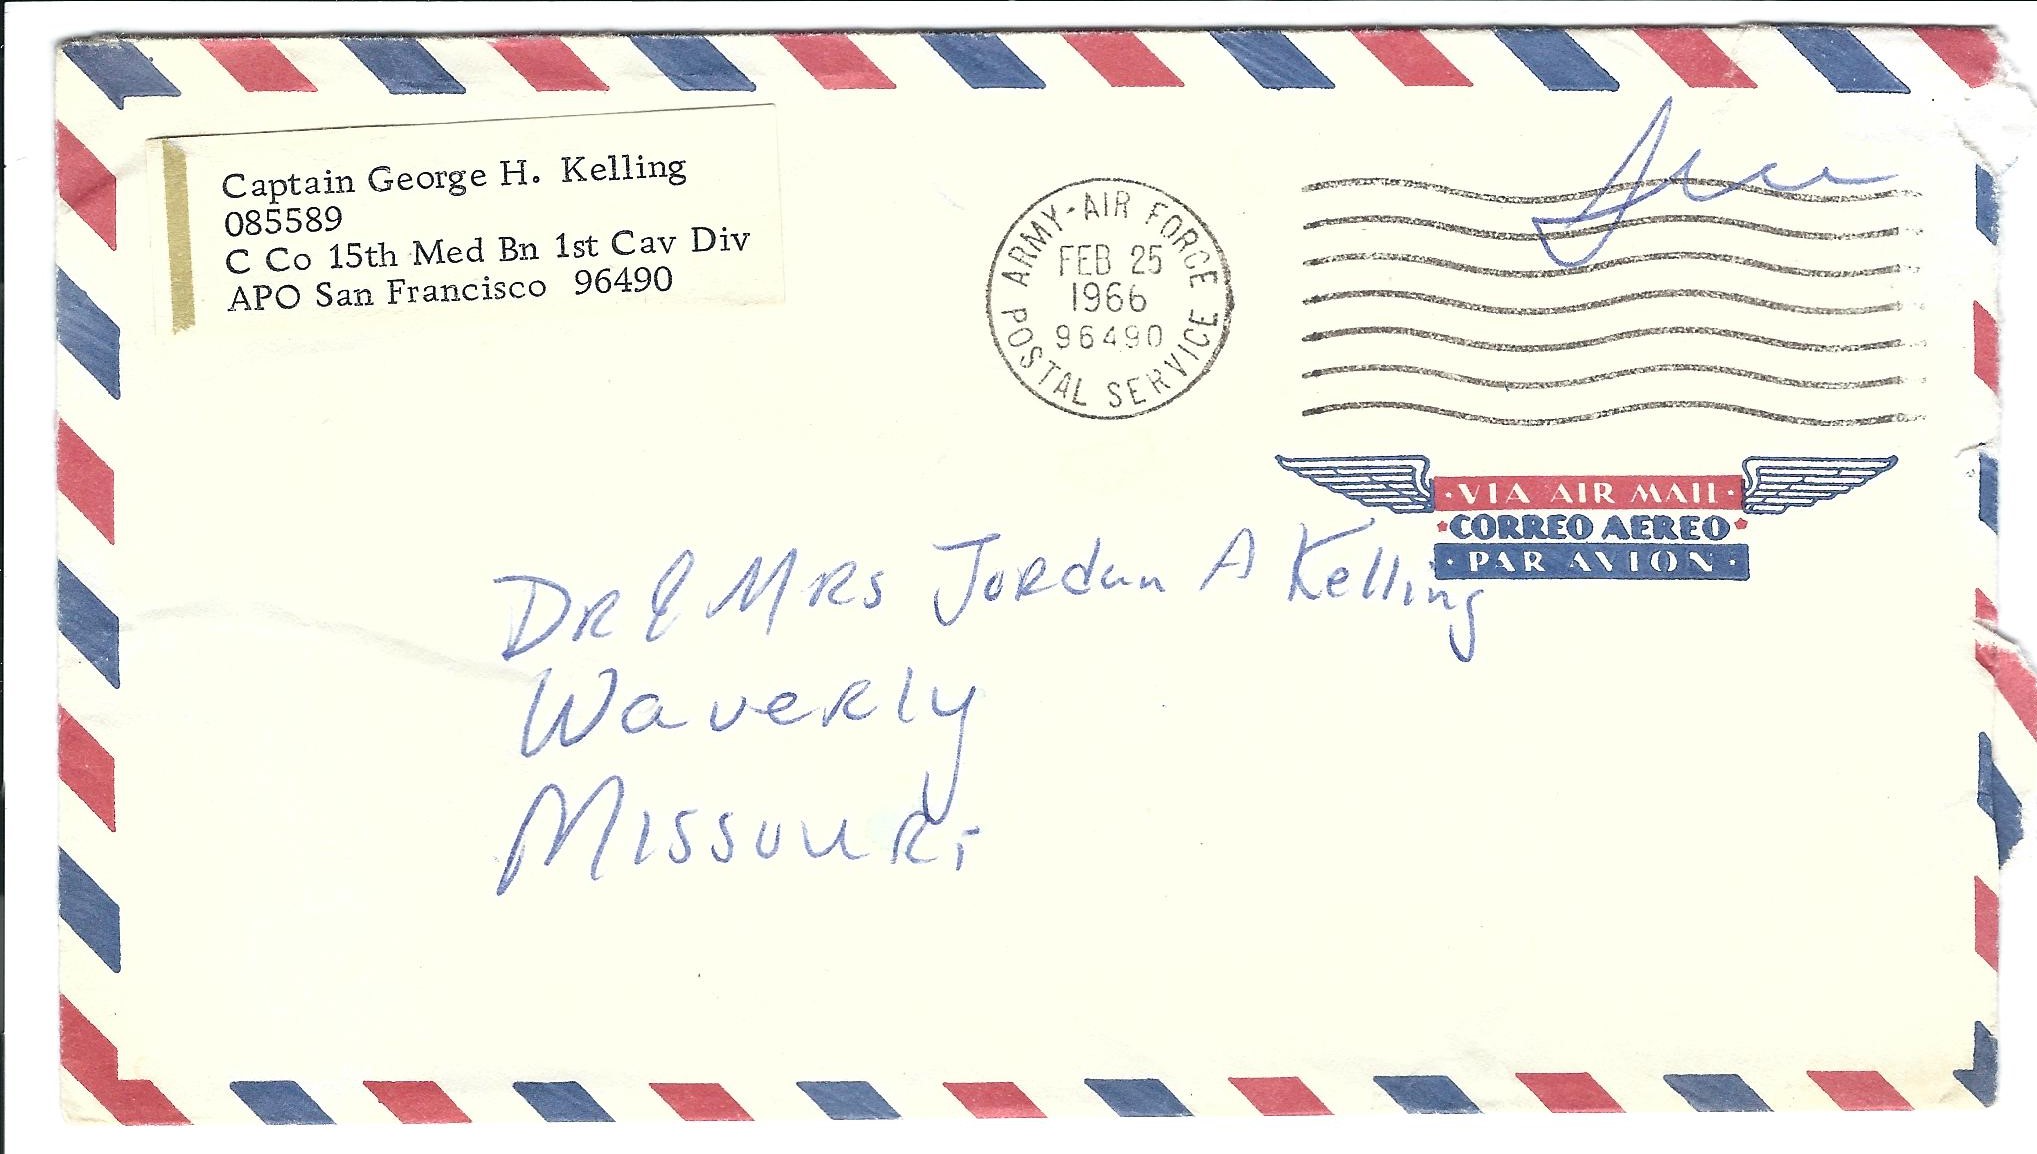 Captain George H. Kelling
085589
C Co 15th Med Bn 1st Cav Div
APO San Francisco 96490
ARMY-AIR FORCE
FEB 25
1966
96490
POSTAL SERVICE
Free
·VIA AIR MAIL·
*CORREO AEREO*
·PAR AVION·
DR & MRS Jordan A Kelling
Waverly
Missouri